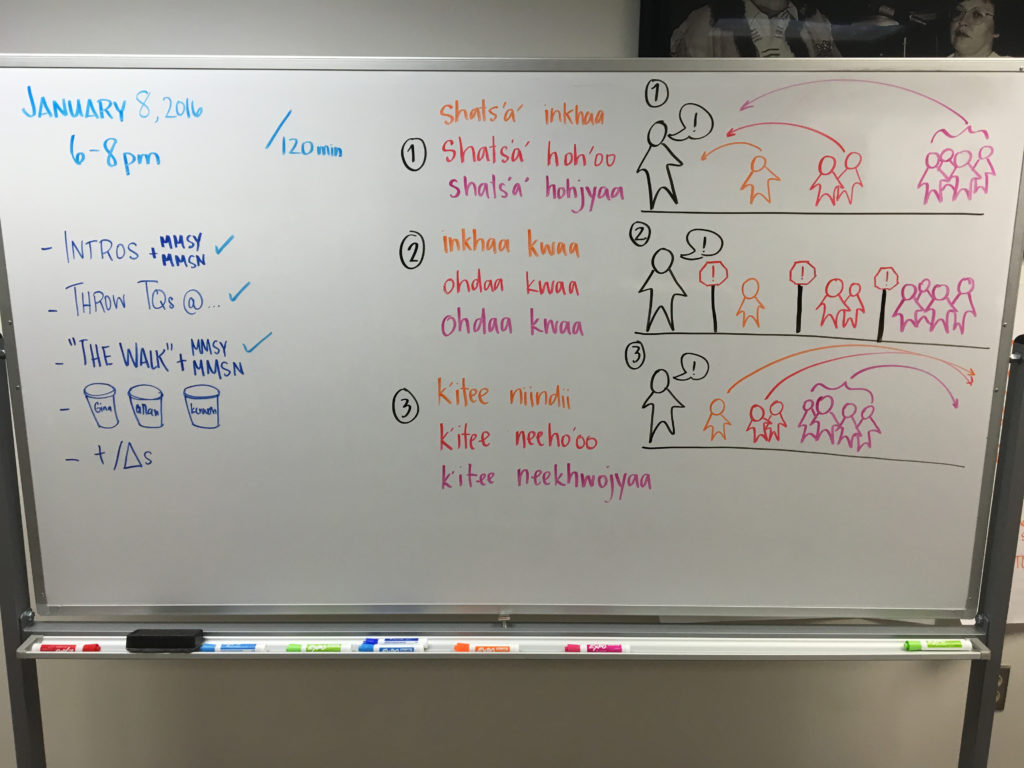 JANUARY 8, 2016
6-8pm
/120 min
- INTROS + MMSY MMSN ✓
- THROW TQs @... ✓
- "THE WALK" + MMSY MMSN ✓
- Gina Allan
- +/Δs
shats'á' inkhaa
① shats'á' hoh'oo
shats'á' hohjyaa
② inkhaa kwaa
ohdaa kwaa
ohdaa kwaa
③ k'itee niindii
k'itee neeho'oo
k'itee neekhwojyaa
①
!
②
!
! ! !
③
!